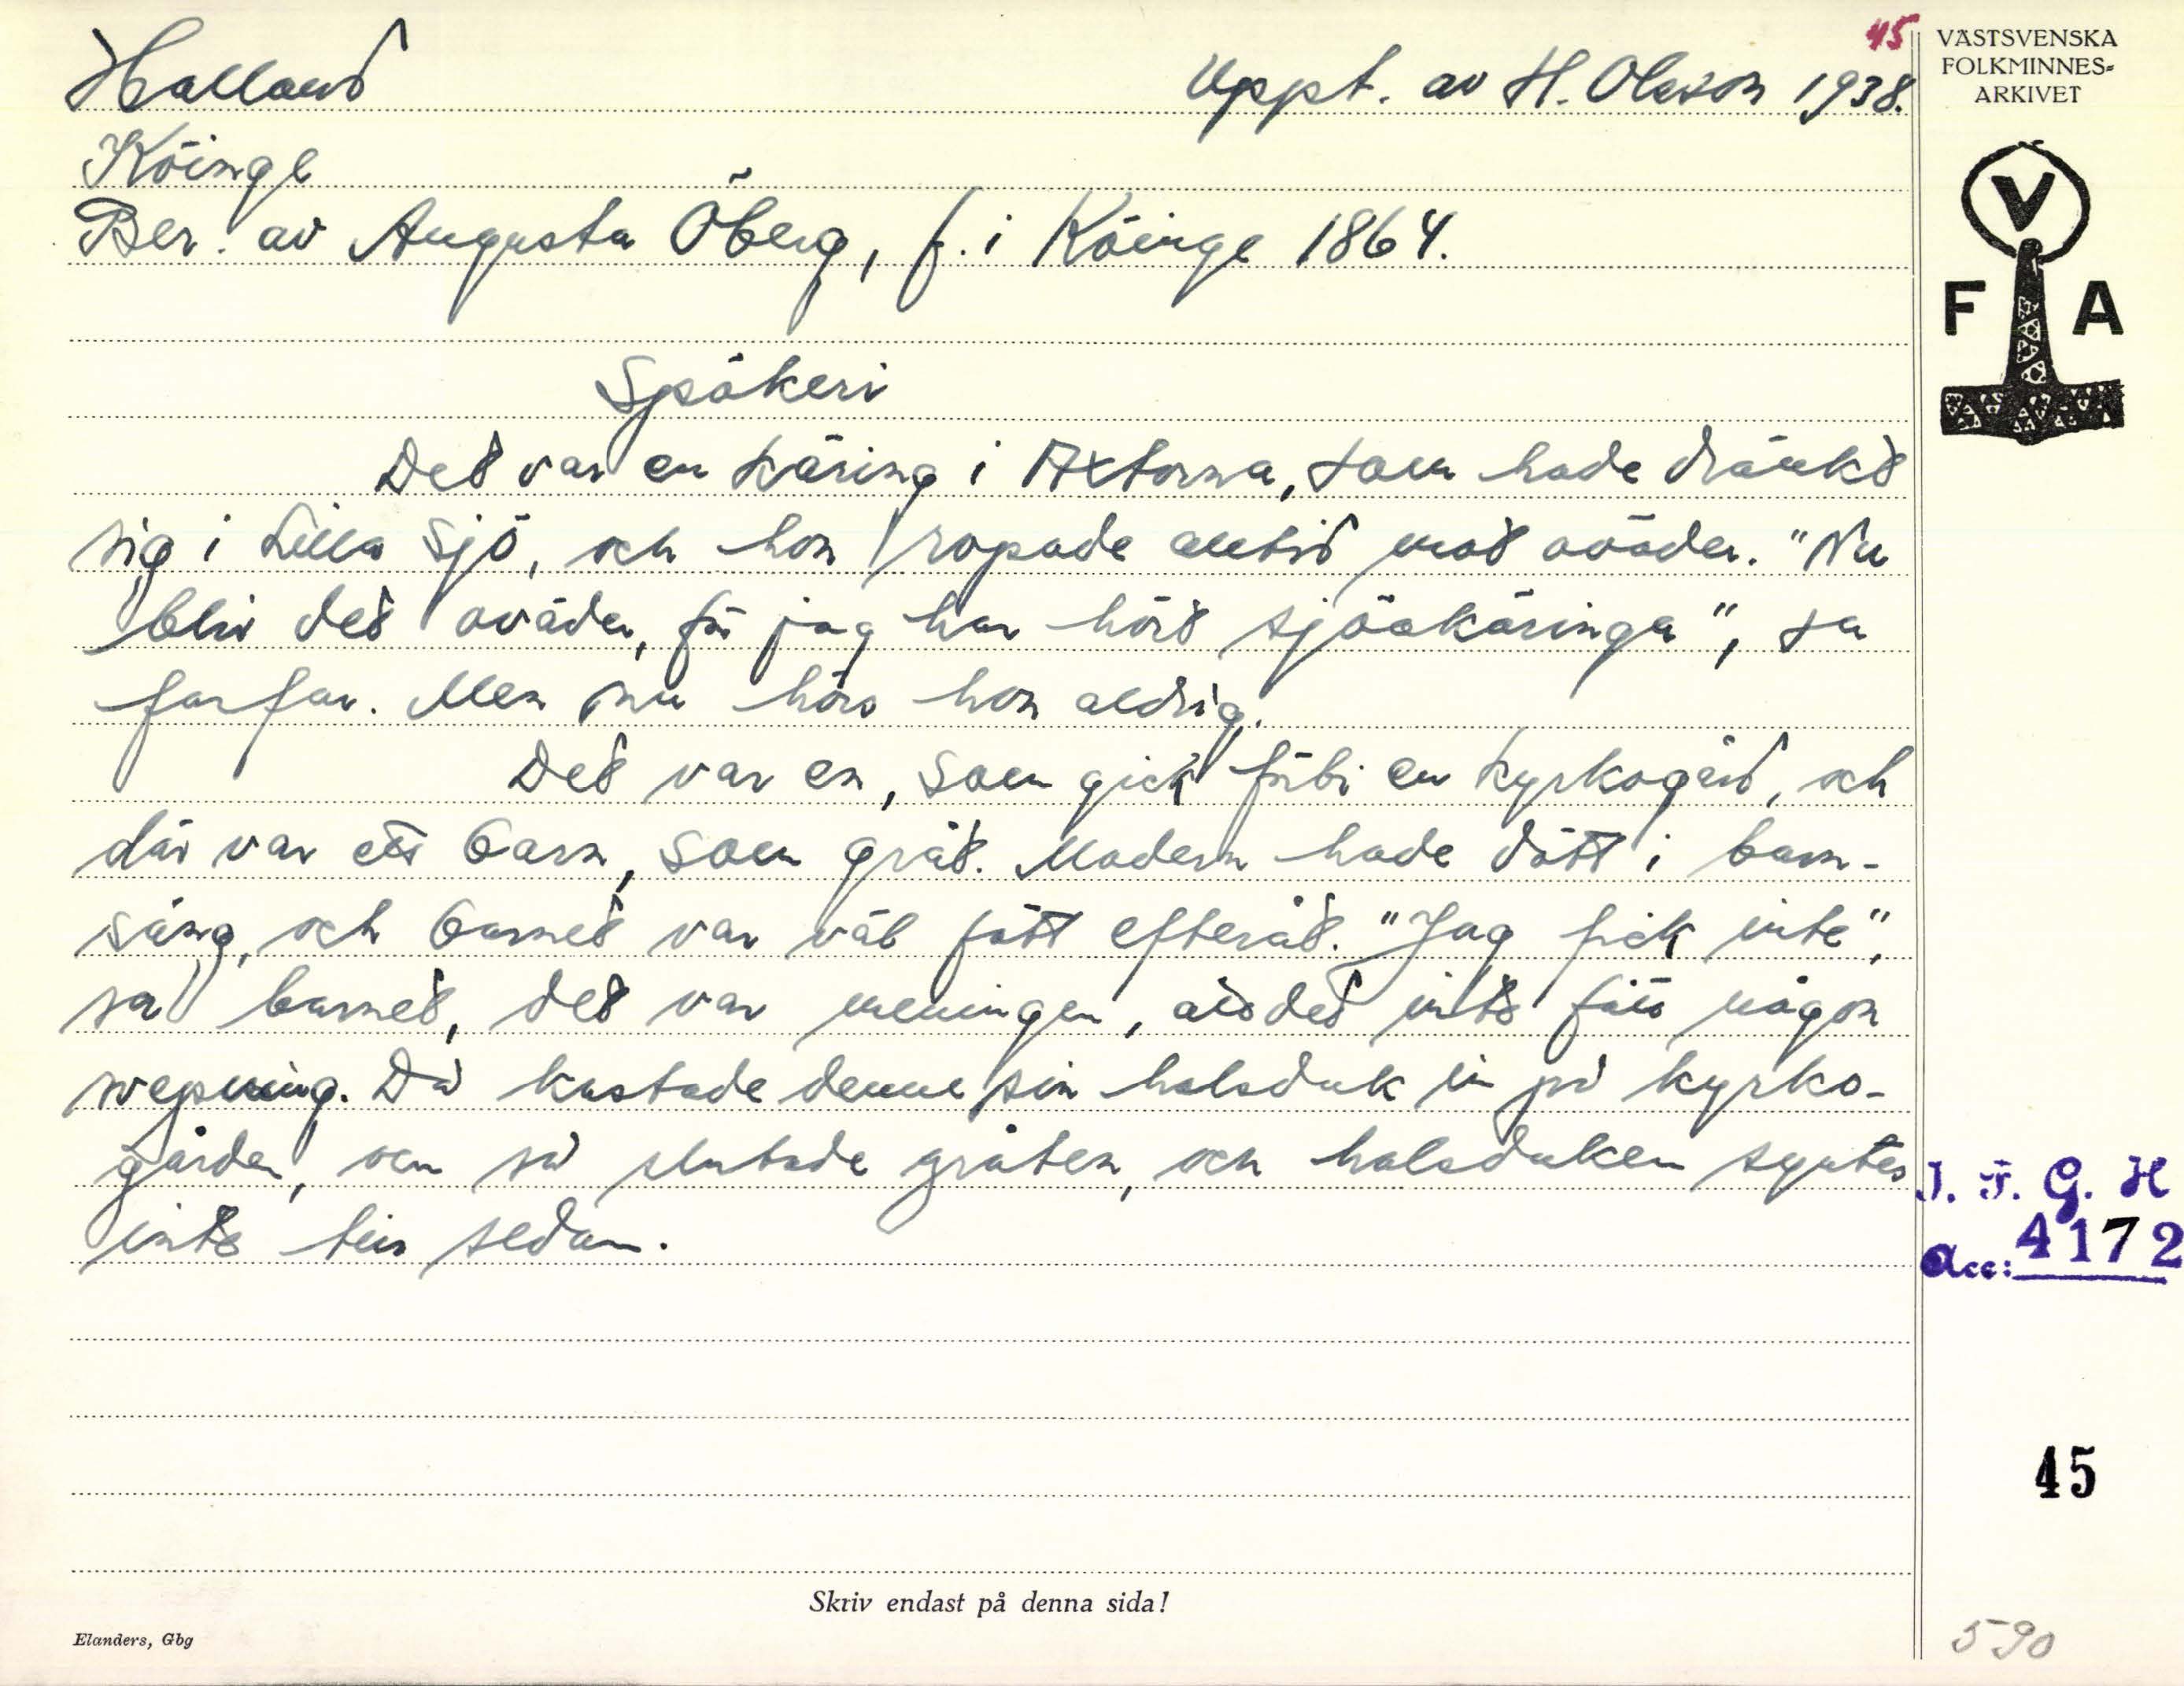 Halland
Uppt. av H. Olsson 1938.
45
Köinge
Ber. av Augusta Öberg, f. i Köinge 1864.
Spökeri
Det var en käring i Axtorna, som hade dränkt
sig i Lilla Sjö, och hon ropade alltid mot oväder. "Nu
blir det oväder, för jag har hört sjöakäringa", sa
farfar. Men nu hörs hon aldrig.
Det var en, som gick förbi en kyrkogård, och
där var ett barn, som grät. Modern hade dött i barn-
säng, och barnet var väl fött efteråt. "Jag fick inte",
sa barnet, det var meningen, att det inte fått någon
svepning. Då kastade denne sin halsduk in på kyrko-
gården, och så slutade gråten, och halsduken syntes
inte till sedan.
VÄSTSVENSKA
FOLKMINNES-
ARKIVET
V
F A
I. F. G. H
Acc: 4172
45
590
Skriv endast på denna sida!
Elanders, Gbg